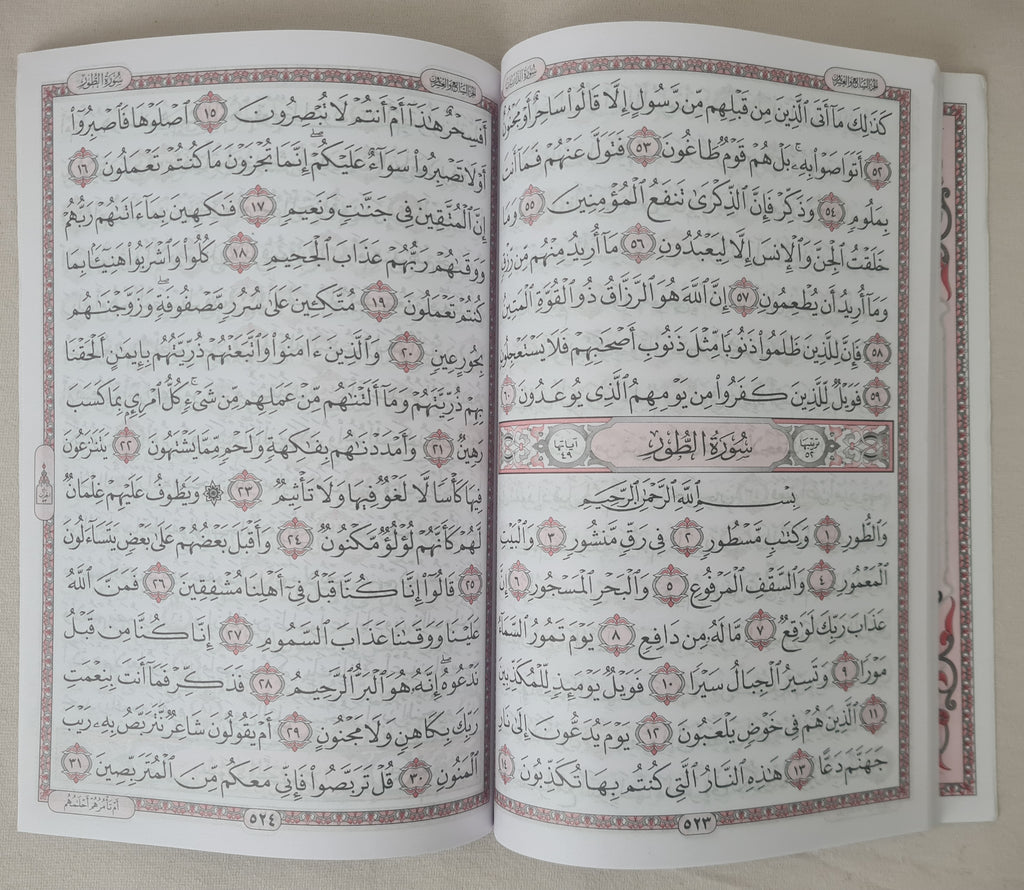 الجزء السابع والعشرون سورة الذاريات
كَذَٰلِكَ مَآ أَتَى ٱلَّذِينَ مِن قَبْلِهِم مِّن رَّسُولٍ إِلَّا قَالُواْ سَاحِرٌ أَوْ مَجْنُونٌ
٥٢ أَتَوَاصَوْاْ بِهِۦۚ بَلْ هُمْ قَوْمٌ طَاغُونَ ٥٣ فَتَوَلَّ عَنْهُمْ فَمَآ أَنتَ
بِمَلُومٍ ٥٤ وَذَكِّرْ فَإِنَّ ٱلذِّكْرَىٰ تَنفَعُ ٱلْمُؤْمِنِينَ ٥٥ وَمَا
خَلَقْتُ ٱلْجِنَّ وَٱلْإِنسَ إِلَّا لِيَعْبُدُونِ ٥٦ مَآ أُرِيدُ مِنْهُم مِّن رِّزْقٍ
وَمَآ أُرِيدُ أَن يُطْعِمُونِ ٥٧ إِنَّ ٱللَّهَ هُوَ ٱلرَّزَّاقُ ذُو ٱلْقُوَّةِ ٱلْمَتِينُ
٥٨ فَإِنَّ لِلَّذِينَ ظَلَمُواْ ذَنُوبًا مِّثْلَ ذَنُوبِ أَصْحَٰبِهِمْ فَلَا يَسْتَعْجِلُونِ
٥٩ فَوَيْلٌ لِّلَّذِينَ كَفَرُواْ مِن يَوْمِهِمُ ٱلَّذِى يُوعَدُونَ ٦٠
ترتيبها ٥٢ سُورَةُ الطُّورِ آياتها ٤٩
بِسْمِ ٱللَّهِ ٱلرَّحْمَٰنِ ٱلرَّحِيمِ
وَٱلطُّورِ ١ وَكِتَٰبٍ مَّسْطُورٍ ٢ فِى رَقٍّ مَّنشُورٍ ٣ وَٱلْبَيْتِ
ٱلْمَعْمُورِ ٤ وَٱلسَّقْفِ ٱلْمَرْفُوعِ ٥ وَٱلْبَحْرِ ٱلْمَسْجُورِ ٦ إِنَّ
عَذَابَ رَبِّكَ لَوَٰقِعٌ ٧ مَّا لَهُۥ مِن دَافِعٍ ٨ يَوْمَ تَمُورُ ٱلسَّمَآءُ
مَوْرًا ٩ وَتَسِيرُ ٱلْجِبَالُ سَيْرًا ١٠ فَوَيْلٌ يَوْمَئِذٍ لِّلْمُكَذِّبِينَ
١١ ٱلَّذِينَ هُمْ فِى خَوْضٍ يَلْعَبُونَ ١٢ يَوْمَ يُدَعُّونَ إِلَىٰ نَارِ
جَهَنَّمَ دَعًّا ١٣ هَٰذِهِ ٱلنَّارُ ٱلَّتِى كُنتُم بِهَا تُكَذِّبُونَ ١٤
٥٢٣
الجزء السابع والعشرون سورة الطور
أَفَسِحْرٌ هَٰذَآ أَمْ أَنتُمْ لَا تُبْصِرُونَ ١٥ ٱصْلَوْهَا فَٱصْبِرُوٓاْ
أَوْ لَا تَصْبِرُواْ سَوَآءٌ عَلَيْكُمْۖ إِنَّمَا تُجْزَوْنَ مَا كُنتُمْ تَعْمَلُونَ ١٦
إِنَّ ٱلْمُتَّقِينَ فِى جَنَّٰتٍ وَنَعِيمٍ ١٧ فَٰكِهِينَ بِمَآ ءَاتَىٰهُمْ رَبُّهُمْ
وَوَقَىٰهُمْ رَبُّهُمْ عَذَابَ ٱلْجَحِيمِ ١٨ كُلُواْ وَٱشْرَبُواْ هَنِيٓـًٔۢا بِمَا
كُنتُمْ تَعْمَلُونَ ١٩ مُتَّكِـِٔينَ عَلَىٰ سُرُرٍ مَّصْفُوفَةٍۖ وَزَوَّجْنَٰهُم
بِحُورٍ عِينٍ ٢٠ وَٱلَّذِينَ ءَامَنُواْ وَٱتَّبَعَتْهُمْ ذُرِّيَّتُهُم بِإِيمَٰنٍ أَلْحَقْنَا
بِهِمْ ذُرِّيَّتَهُمْ وَمَآ أَلَتْنَٰهُم مِّنْ عَمَلِهِم مِّن شَىْءٍۚ كُلُّ ٱمْرِئٍۭ بِمَا كَسَبَ
رَهِينٌ ٢١ وَأَمْدَدْنَٰهُم بِفَٰكِهَةٍ وَلَحْمٍ مِّمَّا يَشْتَهُونَ ٢٢ يَتَنَٰزَعُونَ
فِيهَا كَأْسًا لَّا لَغْوٌ فِيهَا وَلَا تَأْثِيمٌ ٢٣ ۞ وَيَطُوفُ عَلَيْهِمْ غِلْمَانٌ
لَّهُمْ كَأَنَّهُمْ لُؤْلُؤٌ مَّكْنُونٌ ٢٤ وَأَقْبَلَ بَعْضُهُمْ عَلَىٰ بَعْضٍ يَتَسَآءَلُونَ
٢٥ قَالُوٓاْ إِنَّا كُنَّا قَبْلُ فِىٓ أَهْلِنَا مُشْفِقِينَ ٢٦ فَمَنَّ ٱللَّهُ
عَلَيْنَا وَوَقَىٰنَا عَذَابَ ٱلسَّمُومِ ٢٧ إِنَّا كُنَّا مِن قَبْلُ
نَدْعُوهُۖ إِنَّهُۥ هُوَ ٱلْبَرُّ ٱلرَّحِيمُ ٢٨ فَذَكِّرْ فَمَآ أَنتَ بِنِعْمَتِ
رَبِّكَ بِكَاهِنٍ وَلَا مَجْنُونٍ ٢٩ أَمْ يَقُولُونَ شَاعِرٌ نَّتَرَبَّصُ بِهِۦ رَيْبَ
ٱلْمَنُونِ ٣٠ قُلْ تَرَبَّصُواْ فَإِنِّى مَعَكُم مِّنَ ٱلْمُتَرَبِّصِينَ ٣١
أَمْ تَأْمُرُهُمْ أَحْلَٰمُهُم
٥٢٤